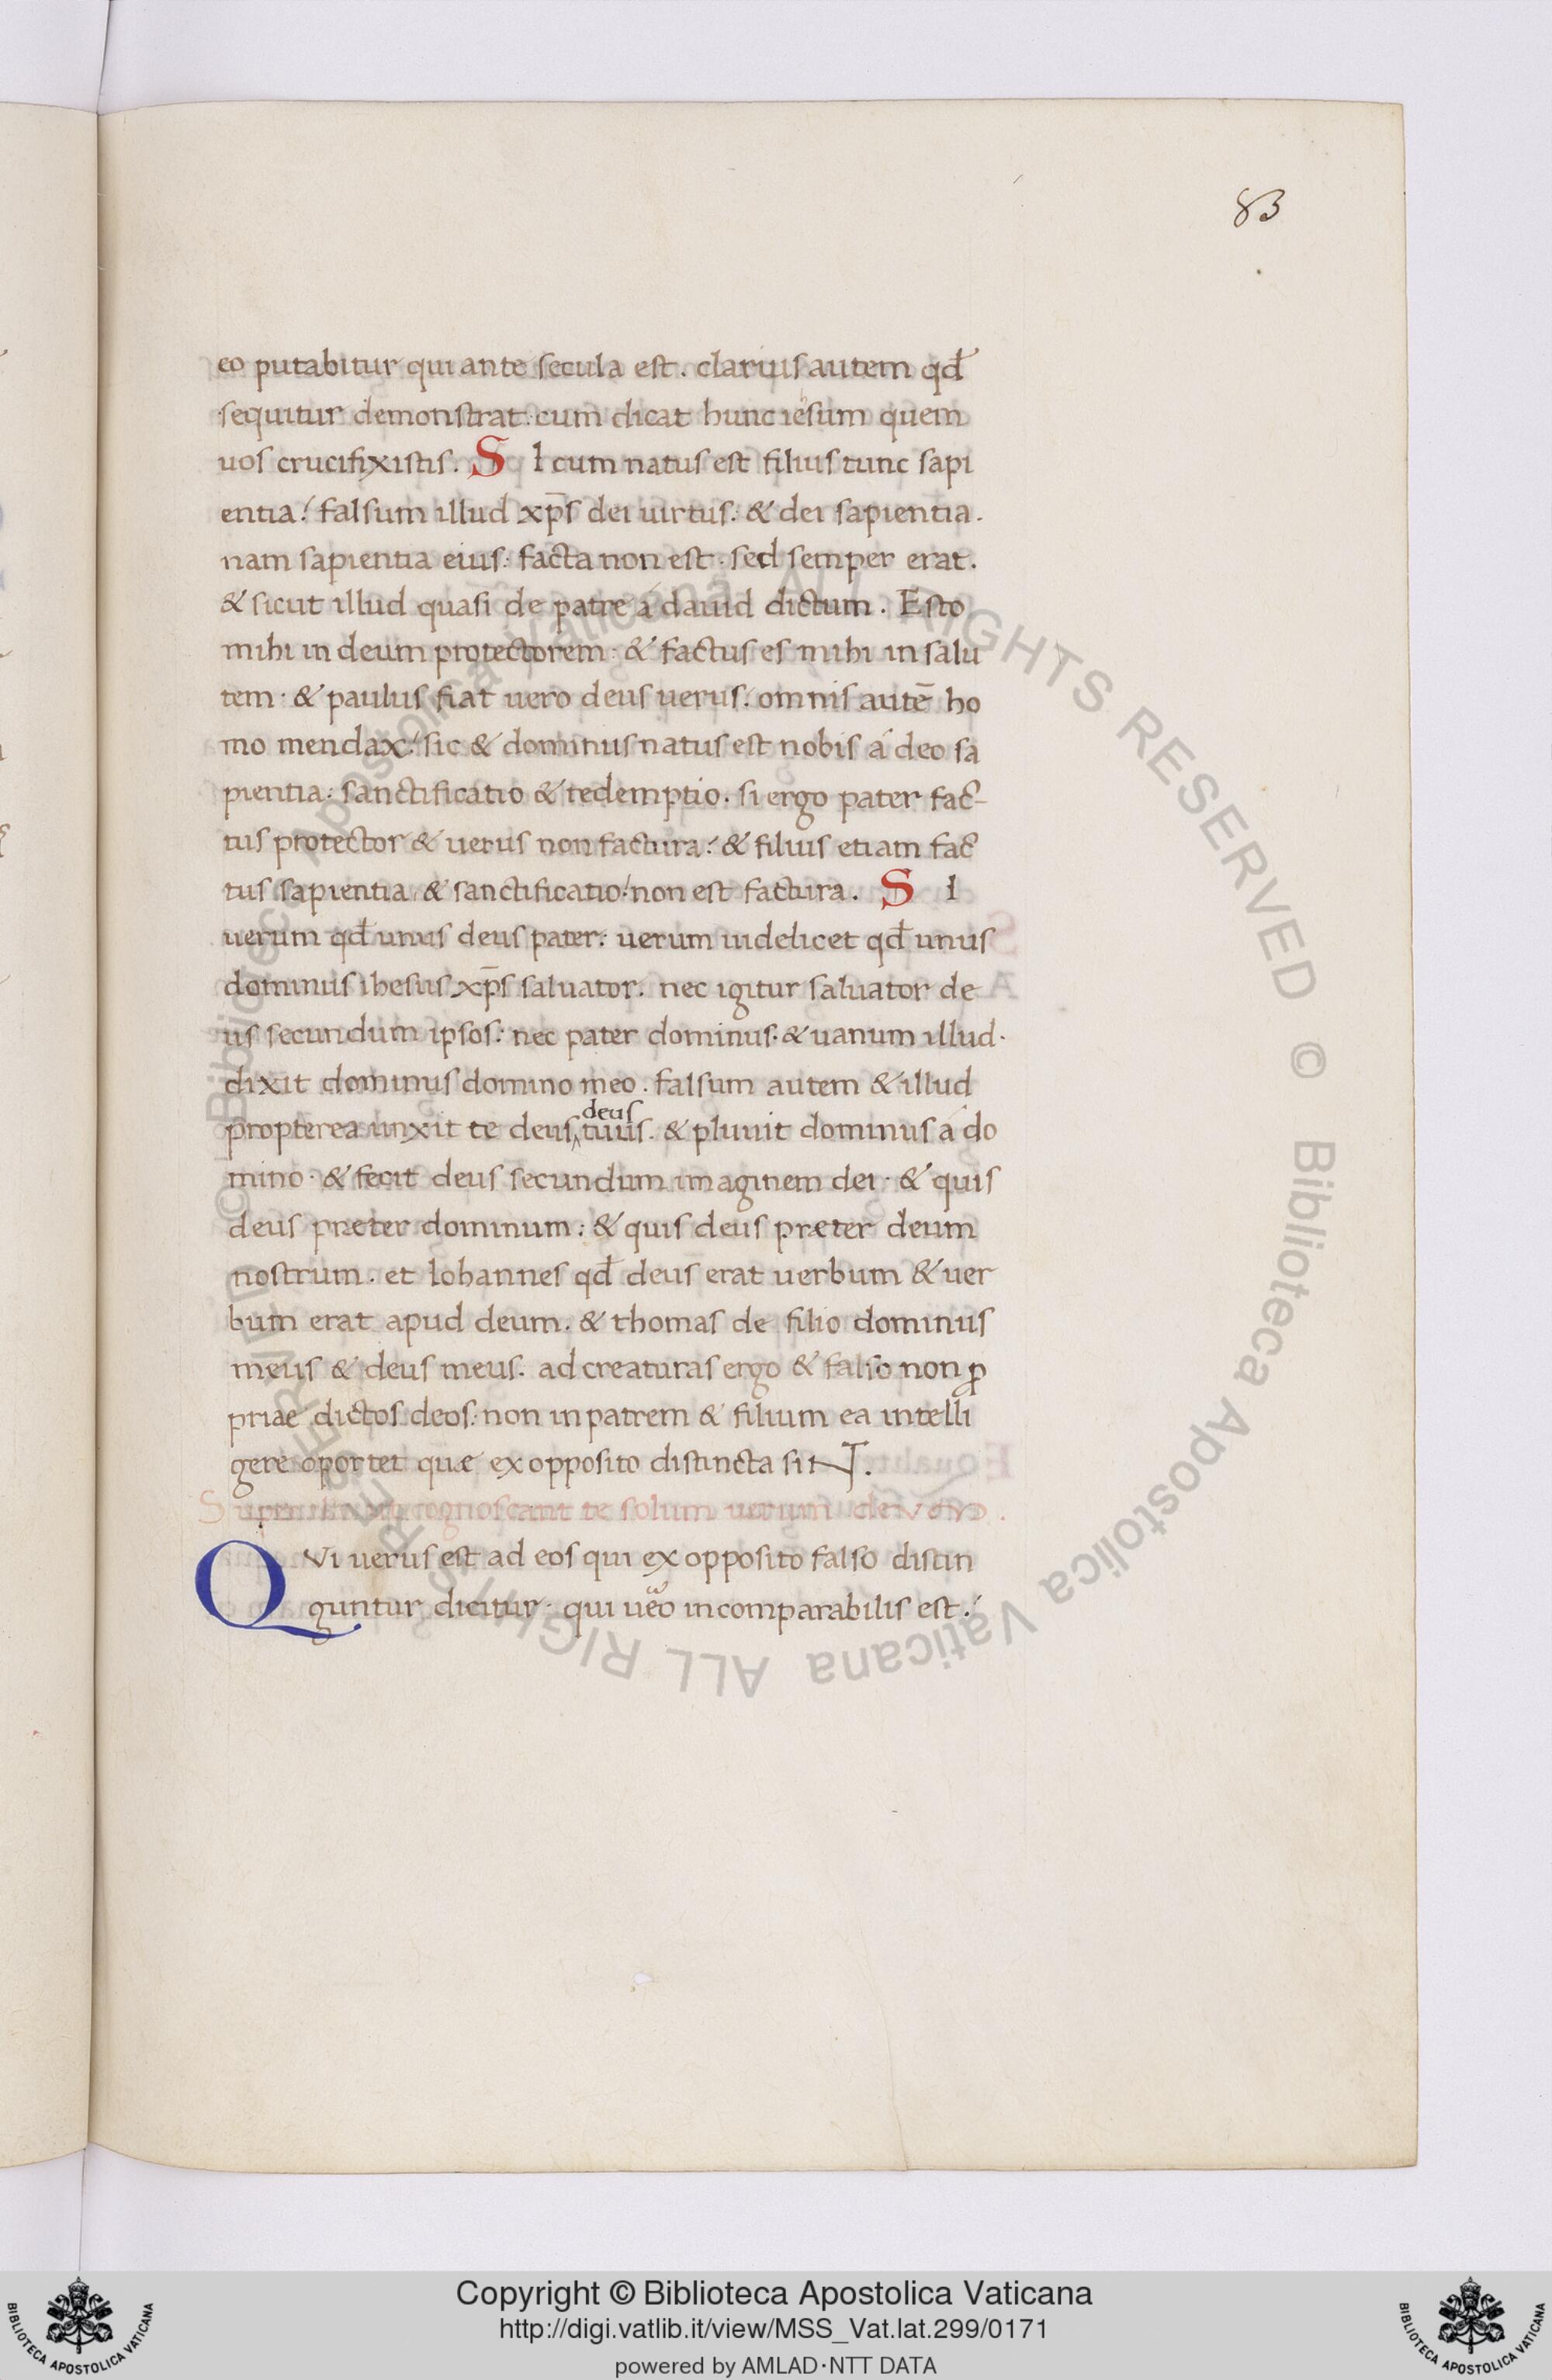 83
eo putabitur qui ante secula est. clarius autem qd̄
sequitur demonstrat: cum dicat hunc iesum quem
uos crucifixistis. S I cum natus est filius tunc sapi
entia: falsum illud xp̄s dei uirtus: & dei sapientia.
nam sapientia eius: facta non est: sed semper erat.
& sicut illud quasi de patre á dauid dictum. Esto
mihi in deum protectorem: & factus es mihi in salu
tem: & paulus fiat uero deus uerus. omnis autē ho
mo mendax: sic & dominus natus est nobis á deo sa
pientia: sanctificatio & redemptio. si ergo pater fac-
tus protector & uerus non factura: & filius etiam fac
tus sapientia & sanctificatio: non est factura. S I
uerum qd̄ unus deus pater: uerum uidelicet qd̄ unus
dominus ihesus xp̄s saluator. nec igitur saluator de
us secundum ipsos: nec pater dominus. & uanum illud.
dixit dominus domino meo. falsum autem & illud
deus
propterea unxit te deus, tuus. & pluuit dominus á do
mino. & fecit deus secundum imaginem dei. & quis
deus præter dominum: & quis deus præter deum
nostrum. et Iohannes qd̄ deus erat uerbum & uer
bum erat apud deum. & thomas de filio dominus
meus & deus meus. ad creaturas ergo & falso non ꝓ
priae dictos deos: non in patrem & filium ea intelli
gere oportet quæ ex opposito distincta sinT.
cognoscant te solum uerum deum.
QVi uerus est ad eos qui ex opposito falso distin
guntur dicitur. qui uēo incomparabilis est.
© Biblioteca Apostolica Vaticana ALL RIGHTS RESERVED © Biblioteca Apostolica Vaticana ALL RIGHTS RESERVED
Copyright © Biblioteca Apostolica Vaticana
http://digi.vatlib.it/view/MSS_Vat.lat.299/0171
powered by AMLAD·NTT DATA
BIBLIOTECA APOSTOLICA VATICANA
BIBLIOTECA APOSTOLICA VATICANA